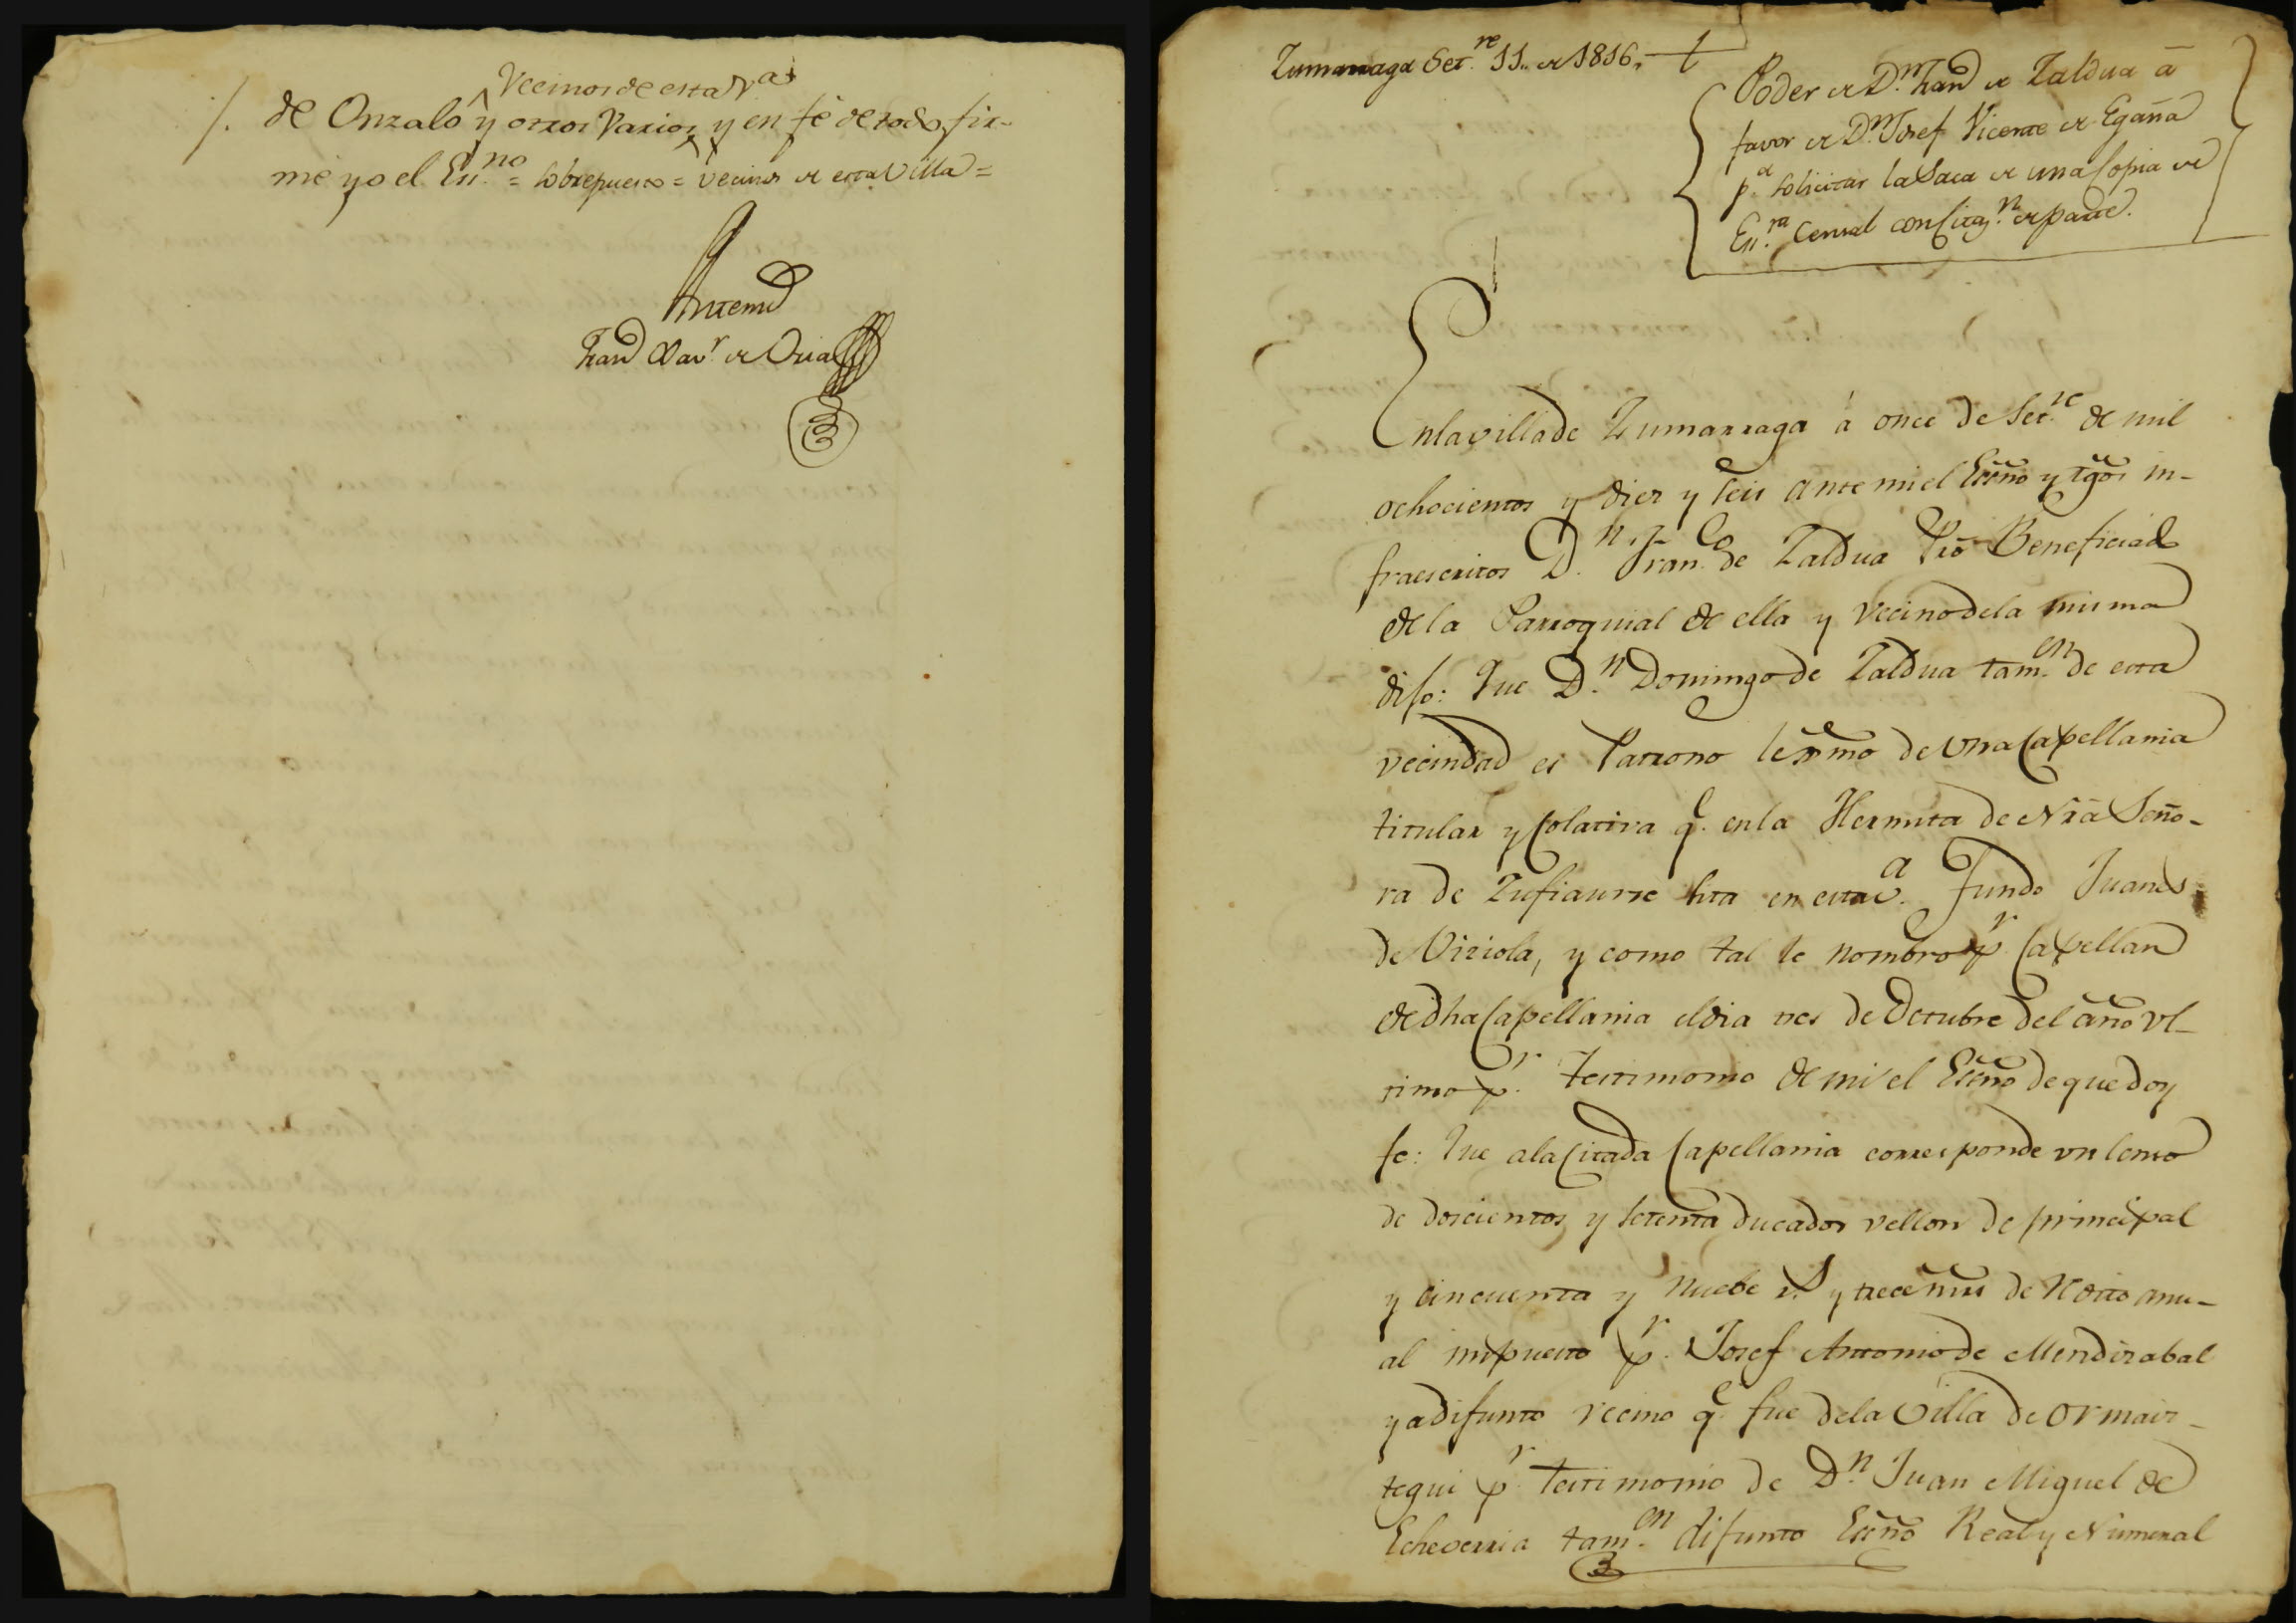 Vecinos de esta V.ᵃ
/. de Onzalo y otros varios y en fé de todo fir-
mé yo el Es.ⁿᵒ = sobrepuesto = vecinos de esta villa =
Antemi
Fran Xav.ʳ de Oria
Zumarraga Set.ʳᵉ 11. de 1816.
Poder de D.ⁿ Fran de Zaldua á
favor de D.ⁿ Josef Vicente de Egaña
p.ᵃ solicitar la saca de una Copia de
Es.ʳᵃ Censal con Citaz.ⁿ de parte.
En la villa de Zumarraga á once de Set.ʳᵉ de mil
ochocientos y diez y seis ante mi el Essño y tgõs in-
fraescritos D.ⁿ Fran.ᶜᵒ de Zaldua Pro Beneficiado
de la Parroquial de ella y vecino de la misma
dijo: Que D.ⁿ Domingo de Zaldua tam.ᵉⁿ de esta
vecindad es Patrono lexmo de una Capellania
titular y Colativa q.ᵉ en la Hermita de Nrã Seño-
ra de Zufiaurre sita en esta v.ᵃ fundo Juanes
de Viriola, y como tal le nombro p.ʳ Capellan
de dha Capellania el dia tres de Octubre del año ul-
timo p.ʳ testimonio de mi el Essño de que doy
fe: Que a la Citada Capellania corresponde un Censo
de doscientos y setenta ducados vellon de principal
y cincuenta y nuebe r.ˢ y trece mrs de redito anu-
al impuesto p.ʳ Josef Antonio de Mendizabal
ya difunto vecino q.ᵉ fue de la Villa de Ormaiz-
tegui p.ʳ testimonio de D.ⁿ Juan Miguel de
Echeverria tam.ᵉⁿ difunto Essño Real y Numeral